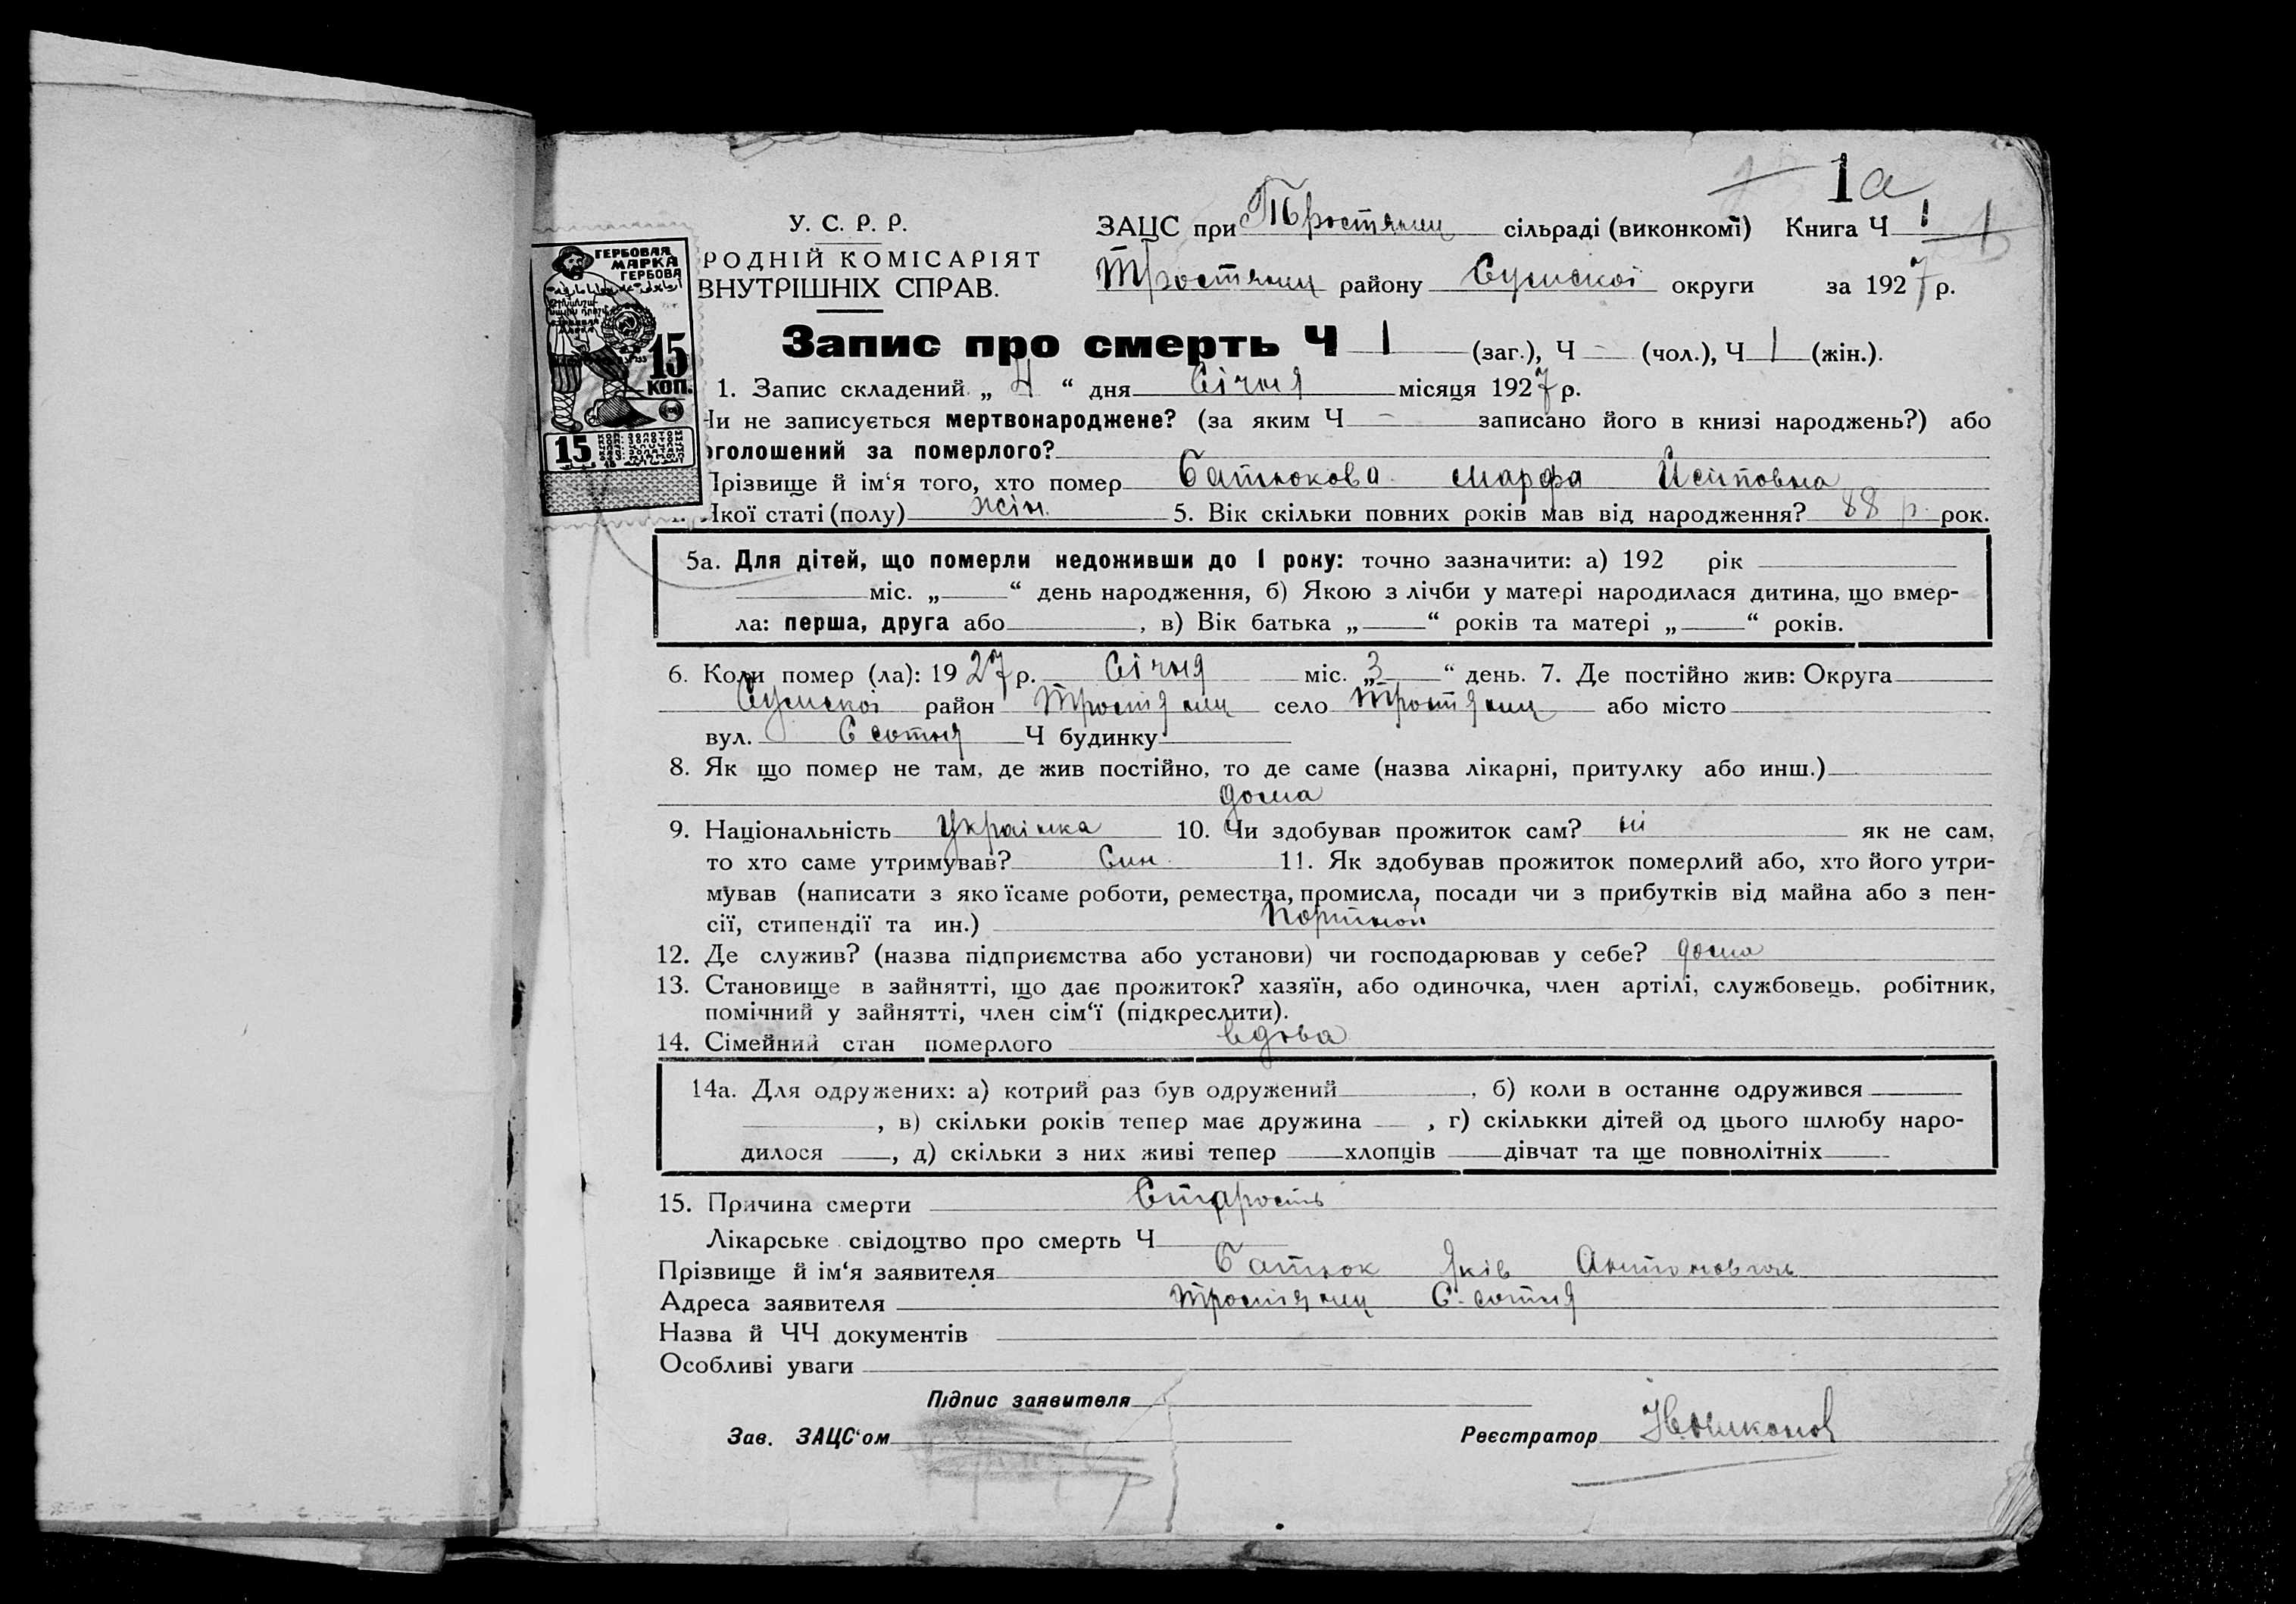 1а
У. С. Р. Р.
ЗАЦС при Тростянец сільраді (виконкомі) Книга Ч 1
РОДНІЙ КОМІСАРІЯТ
ВНУТРІШНІХ СПРАВ.
Тростянец району Сумскої округи за 1927 р.
ГЕРБОВАЯ
МАРКА
ГЕРБОВА
15
КОП.
15
Запис про смерть Ч 1 (заг.), Ч – (чол.), Ч 1 (жін.).
1. Запис складений „ 4 “ дня Січня місяця 1927 р.
Чи не записується мертвонароджене? (за яким Ч – записано його в книзі народжень?) або
оголошений за померлого?
Прізвище й ім‘я того, хто помер Батюкова Марфа Йсіповна
Якої статі (полу) жін. 5. Вік скільки повних років мав від народження? 88 р. рок.
5а. Для дітей, що померли недоживши до 1 року: точно зазначити: а) 192 рік
міс. „ “ день народження, б) Якою з лічби у матері народилася дитина, що вмер-
ла: перша, друга або , в) Вік батька „ “ років та матері „ “ років.
6. Коли помер (ла): 1927 р. Січня міс. „ 3 “ день. 7. Де постійно жив: Округа
Сумскої район Тростянец село Тростянец або місто
вул. 6 сотня Ч будинку
8. Як що помер не там, де жив постійно, то де саме (назва лікарні, притулку або инш.)
дома
9. Національність Українка 10. Чи здобував прожиток сам? ні як не сам,
то хто саме утримував? Син 11. Як здобував прожиток померлий або, хто його утри-
мував (написати з яко їсаме роботи, ремества, промисла, посади чи з прибутків від майна або з пен-
сії, стипендії та ин.) Портной
12. Де служив? (назва підприємства або установи) чи господарював у себе? дома
13. Становище в зайнятті, що дає прожиток? хазяїн, або одиночка, член артілі, службовець, робітник,
помічний у зайнятті, член сім‘ї (підкреслити).
14. Сімейний стан померлого вдова
14а. Для одружених: а) котрий раз був одружений , б) коли в останнє одружився
, в) скільки років тепер має дружина , г) скількки дітей од цього шлюбу наро-
дилося , д) скільки з них живі тепер хлопців дівчат та ще повнолітніх
15. Причина смерти Старость
Лікарське свідоцтво про смерть Ч
Прізвище й ім‘я заявителя Батюк Яків Антонович
Адреса заявителя Тростянец 6. сотня
Назва й ЧЧ документів
Особливі уваги
Підпис заявителя
Зав. ЗАЦС‘ом Реєстратор